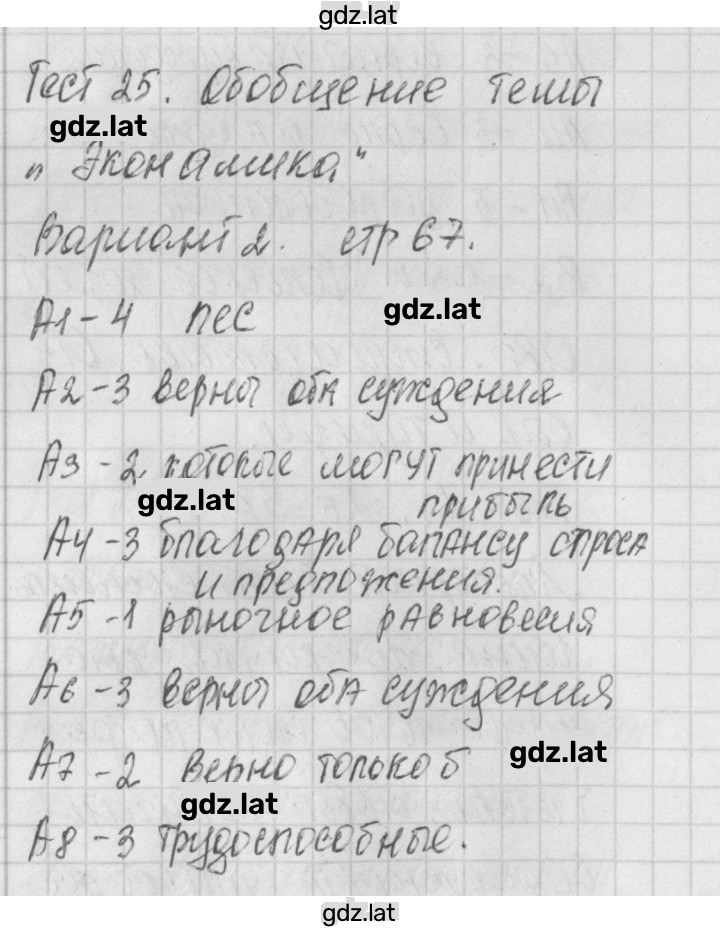 gdz.lat
Тест 25. Обобщение темы
gdz.lat
„Экономика"
Вариант 2. стр 67.
А1-4 лес
gdz.lat
А2-3 верны оба суждения
А3-2 которые могут принести
gdz.lat
прибыль
А4-3 благодаря балансу спроса
и предложения.
А5-1 рыночное равновесия
А6-3 верны оба суждения
А7-2 верно только б
gdz.lat
gdz.lat
А8-3 трудоспособные.
gdz.lat